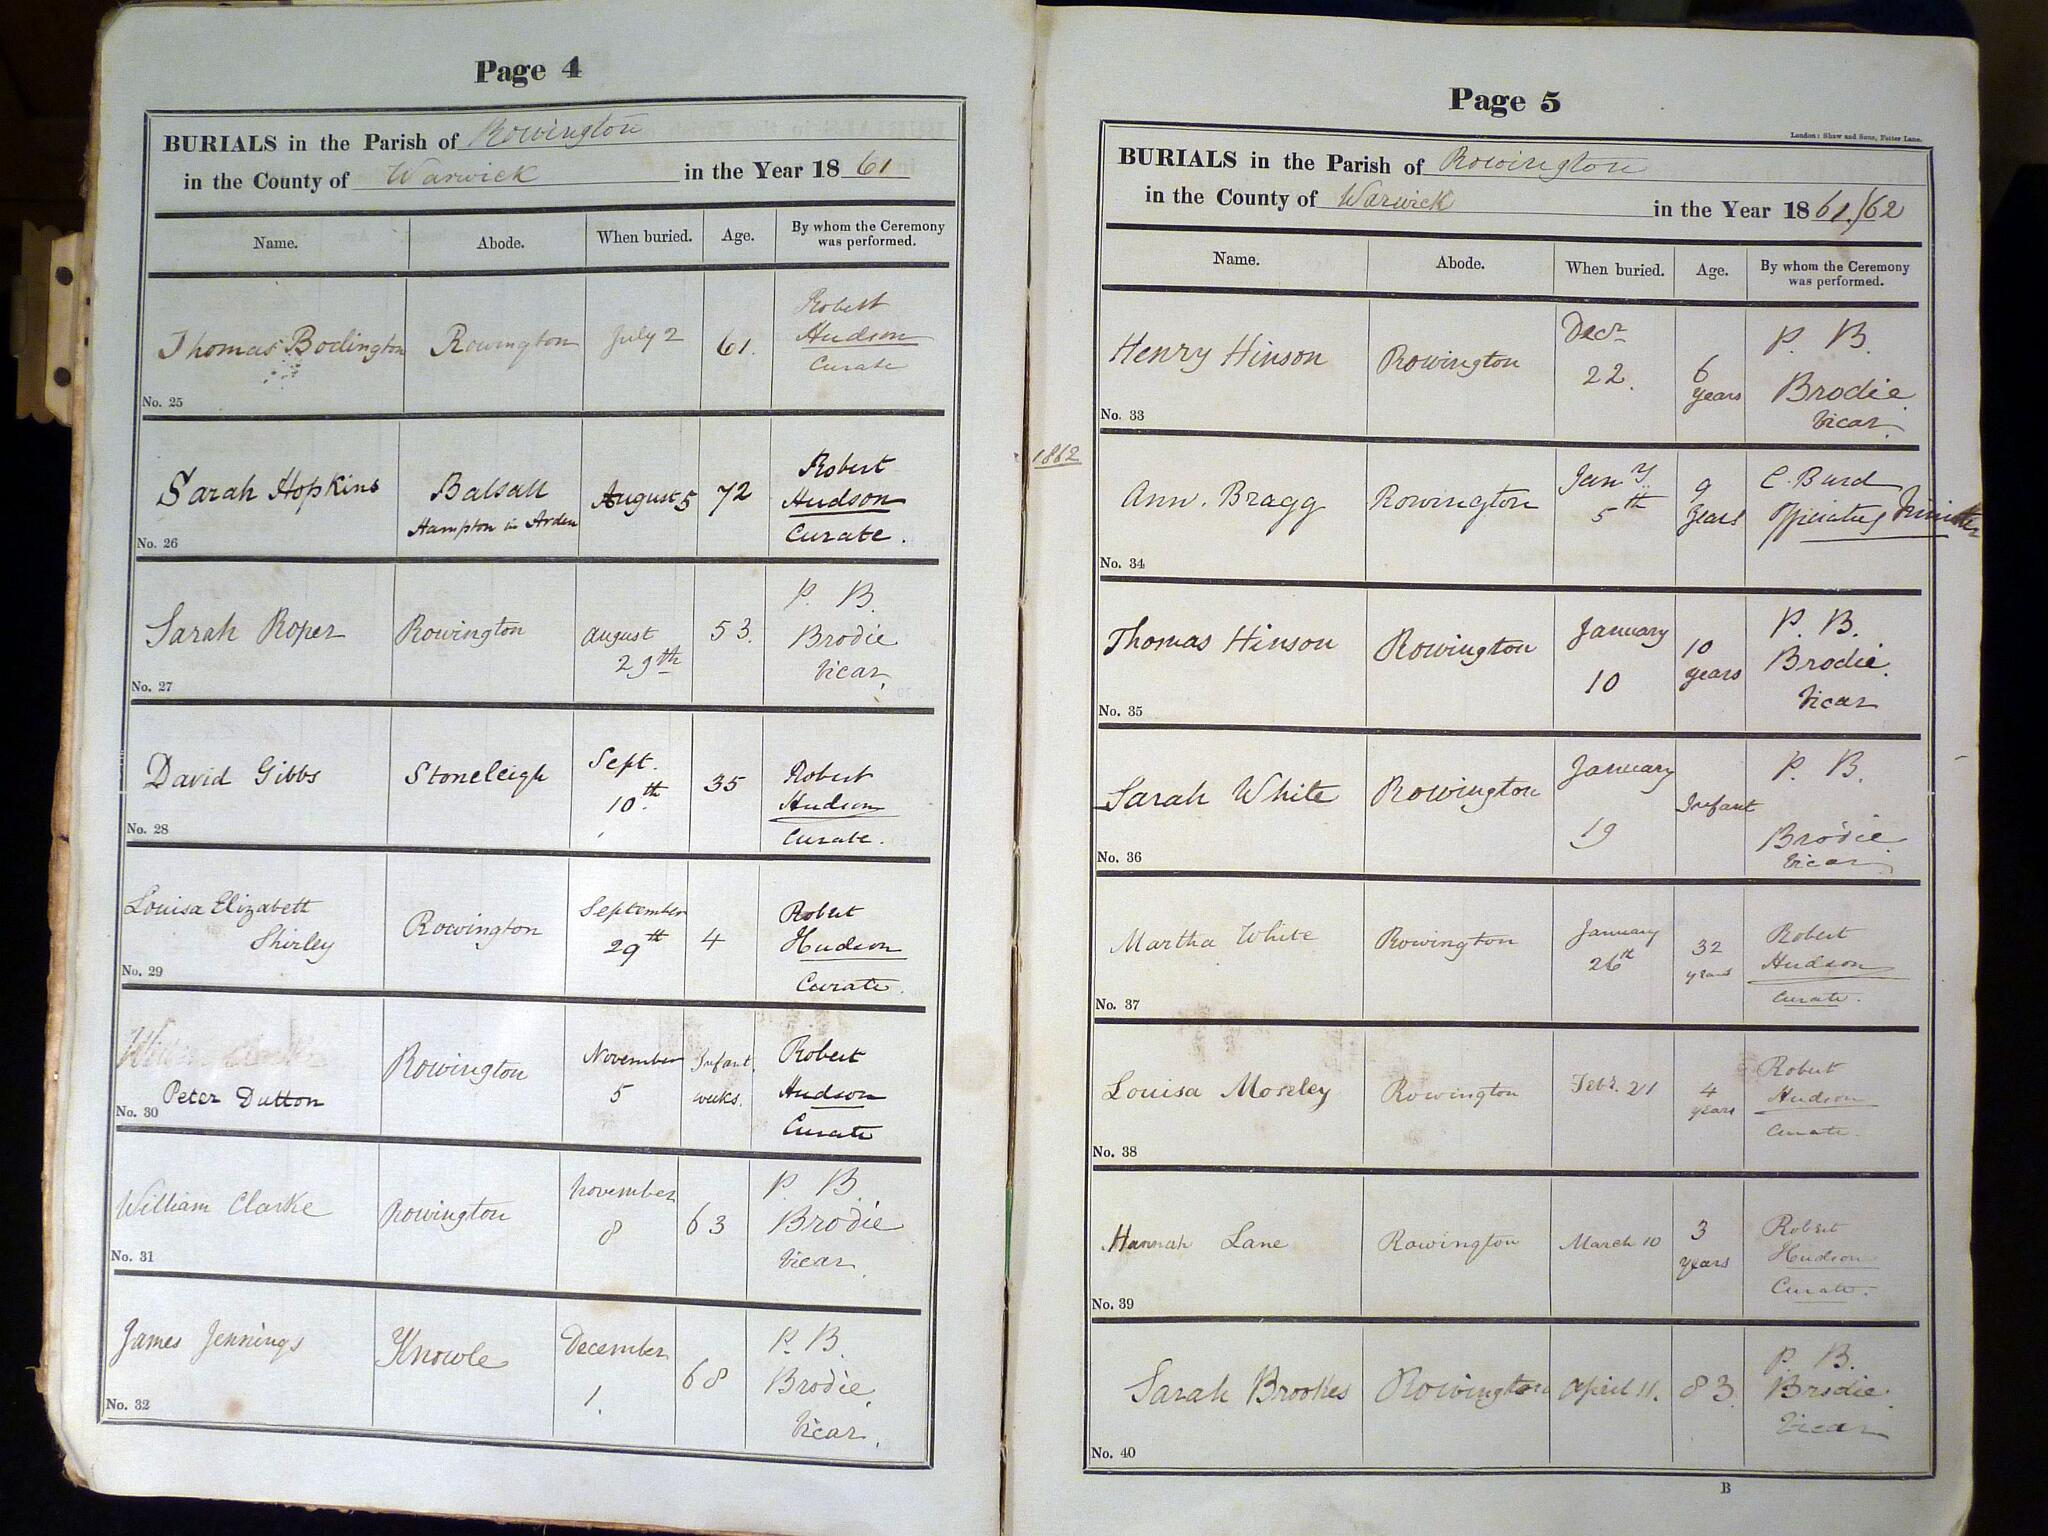 Page 4
BURIALS in the Parish of Rowington
in the County of Warwick in the Year 1861
Name. Abode. When buried. Age. By whom the Ceremony
was performed.
Thomas Bodington Rowington July 2 61. Robert
Hudson
Curate
No. 25
Sarah Hopkins Balsall August 5 72 Robert
Hampton in Arden Hudson
Curate.
No. 26
Sarah Roper Rowington august 53. P. B.
29th Brodie
Vicar.
No. 27
David Gibbs Stoneleigh Sept. 35 Robert
10th. Hudson
Curate.
No. 28
Louisa Elizabeth Rowington September 4 Robert
Shirley 29th Hudson
Curate.
No. 29
William Clarke Rowington November Infant Robert
Peter Dutton 5 weeks. Hudson
Curate
No. 30
William Clarke Rowington November 63 P. B.
8 Brodie
Vicar
No. 31
James Jennings Knowle December 68 P. B.
1. Brodie
Vicar.
No. 32
Page 5
London: Shaw and Sons, Fetter Lane.
BURIALS in the Parish of Rowington
in the County of Warwick in the Year 1861./62
Name. Abode. When buried. Age. By whom the Ceremony
was performed.
Henry Hinson Rowington Decr 6 P. B.
22. years Brodie
Vicar.
No. 33
1862
Ann. Bragg Rowington Jany. 9 C. Burd
5th years Officiating Minister
No. 34
Thomas Hinson Rowington January 10 P. B.
10 years Brodie.
Vicar
No. 35
Sarah White Rowington January Infant P. B.
19 Brodie
Vicar
No. 36
Martha White Rowington January 32 Robert
26th years Hudson
Curate.
No. 37
Louisa Moseley Rowington Febr. 21 4 Robert
years Hudson
Curate.
No. 38
Hannah Lane Rowington March 10 3 Robert
years Hudson
Curate.
No. 39
Sarah Brookes Rowington April 11. 83. P. B.
Brodie.
Vicar
No. 40
B